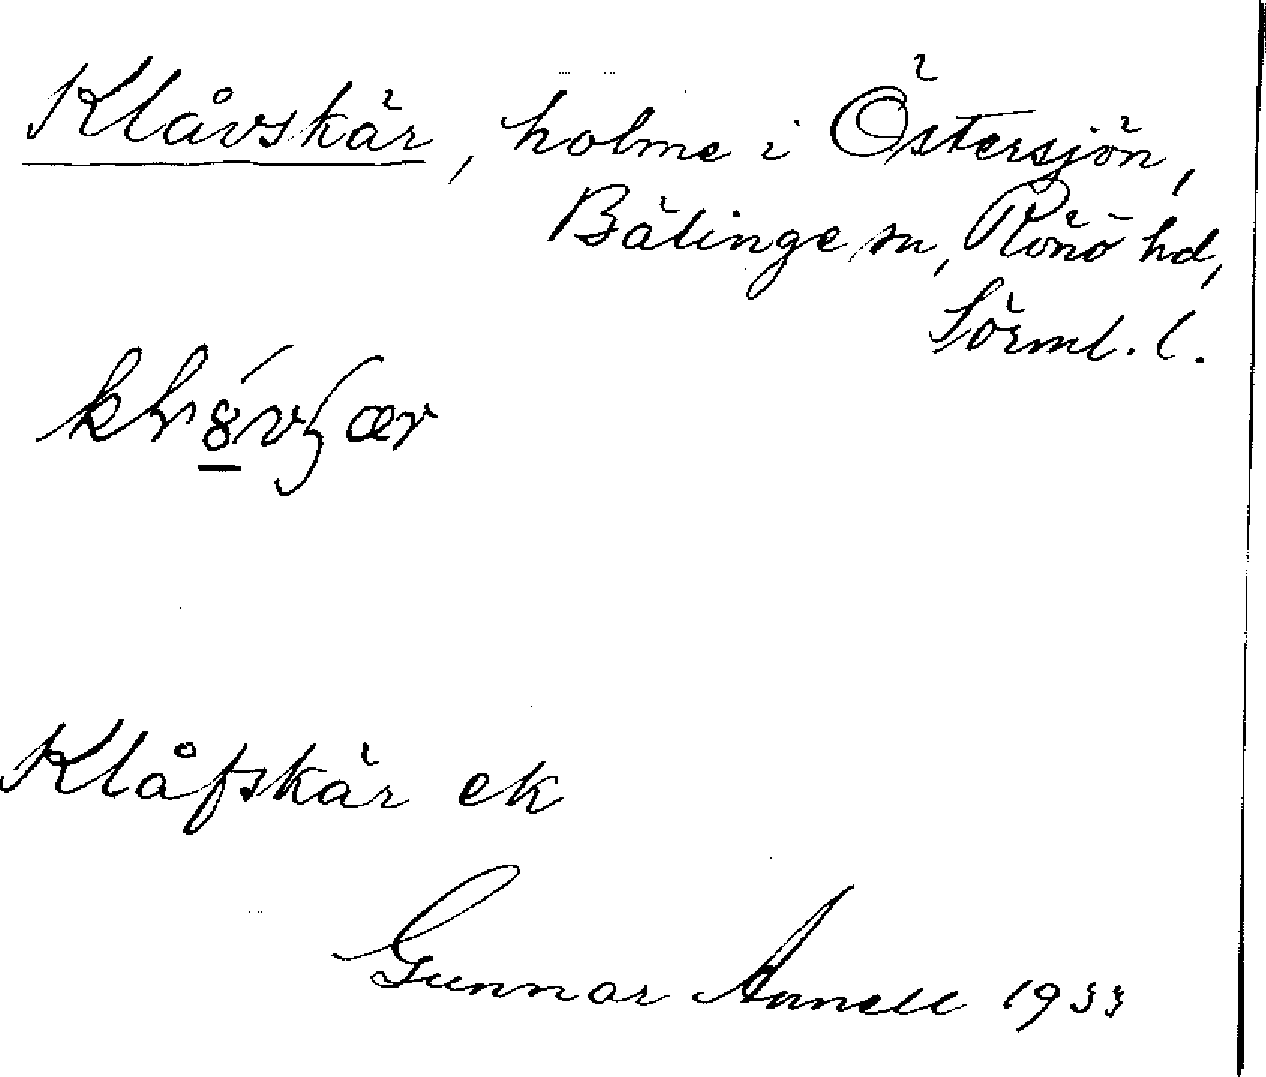 Klåvskär, holme i Östersjön,
Bälinge sn, Rönö hd,
Sörml. l.
Klåfskär ek
Gunnar Annell 1933